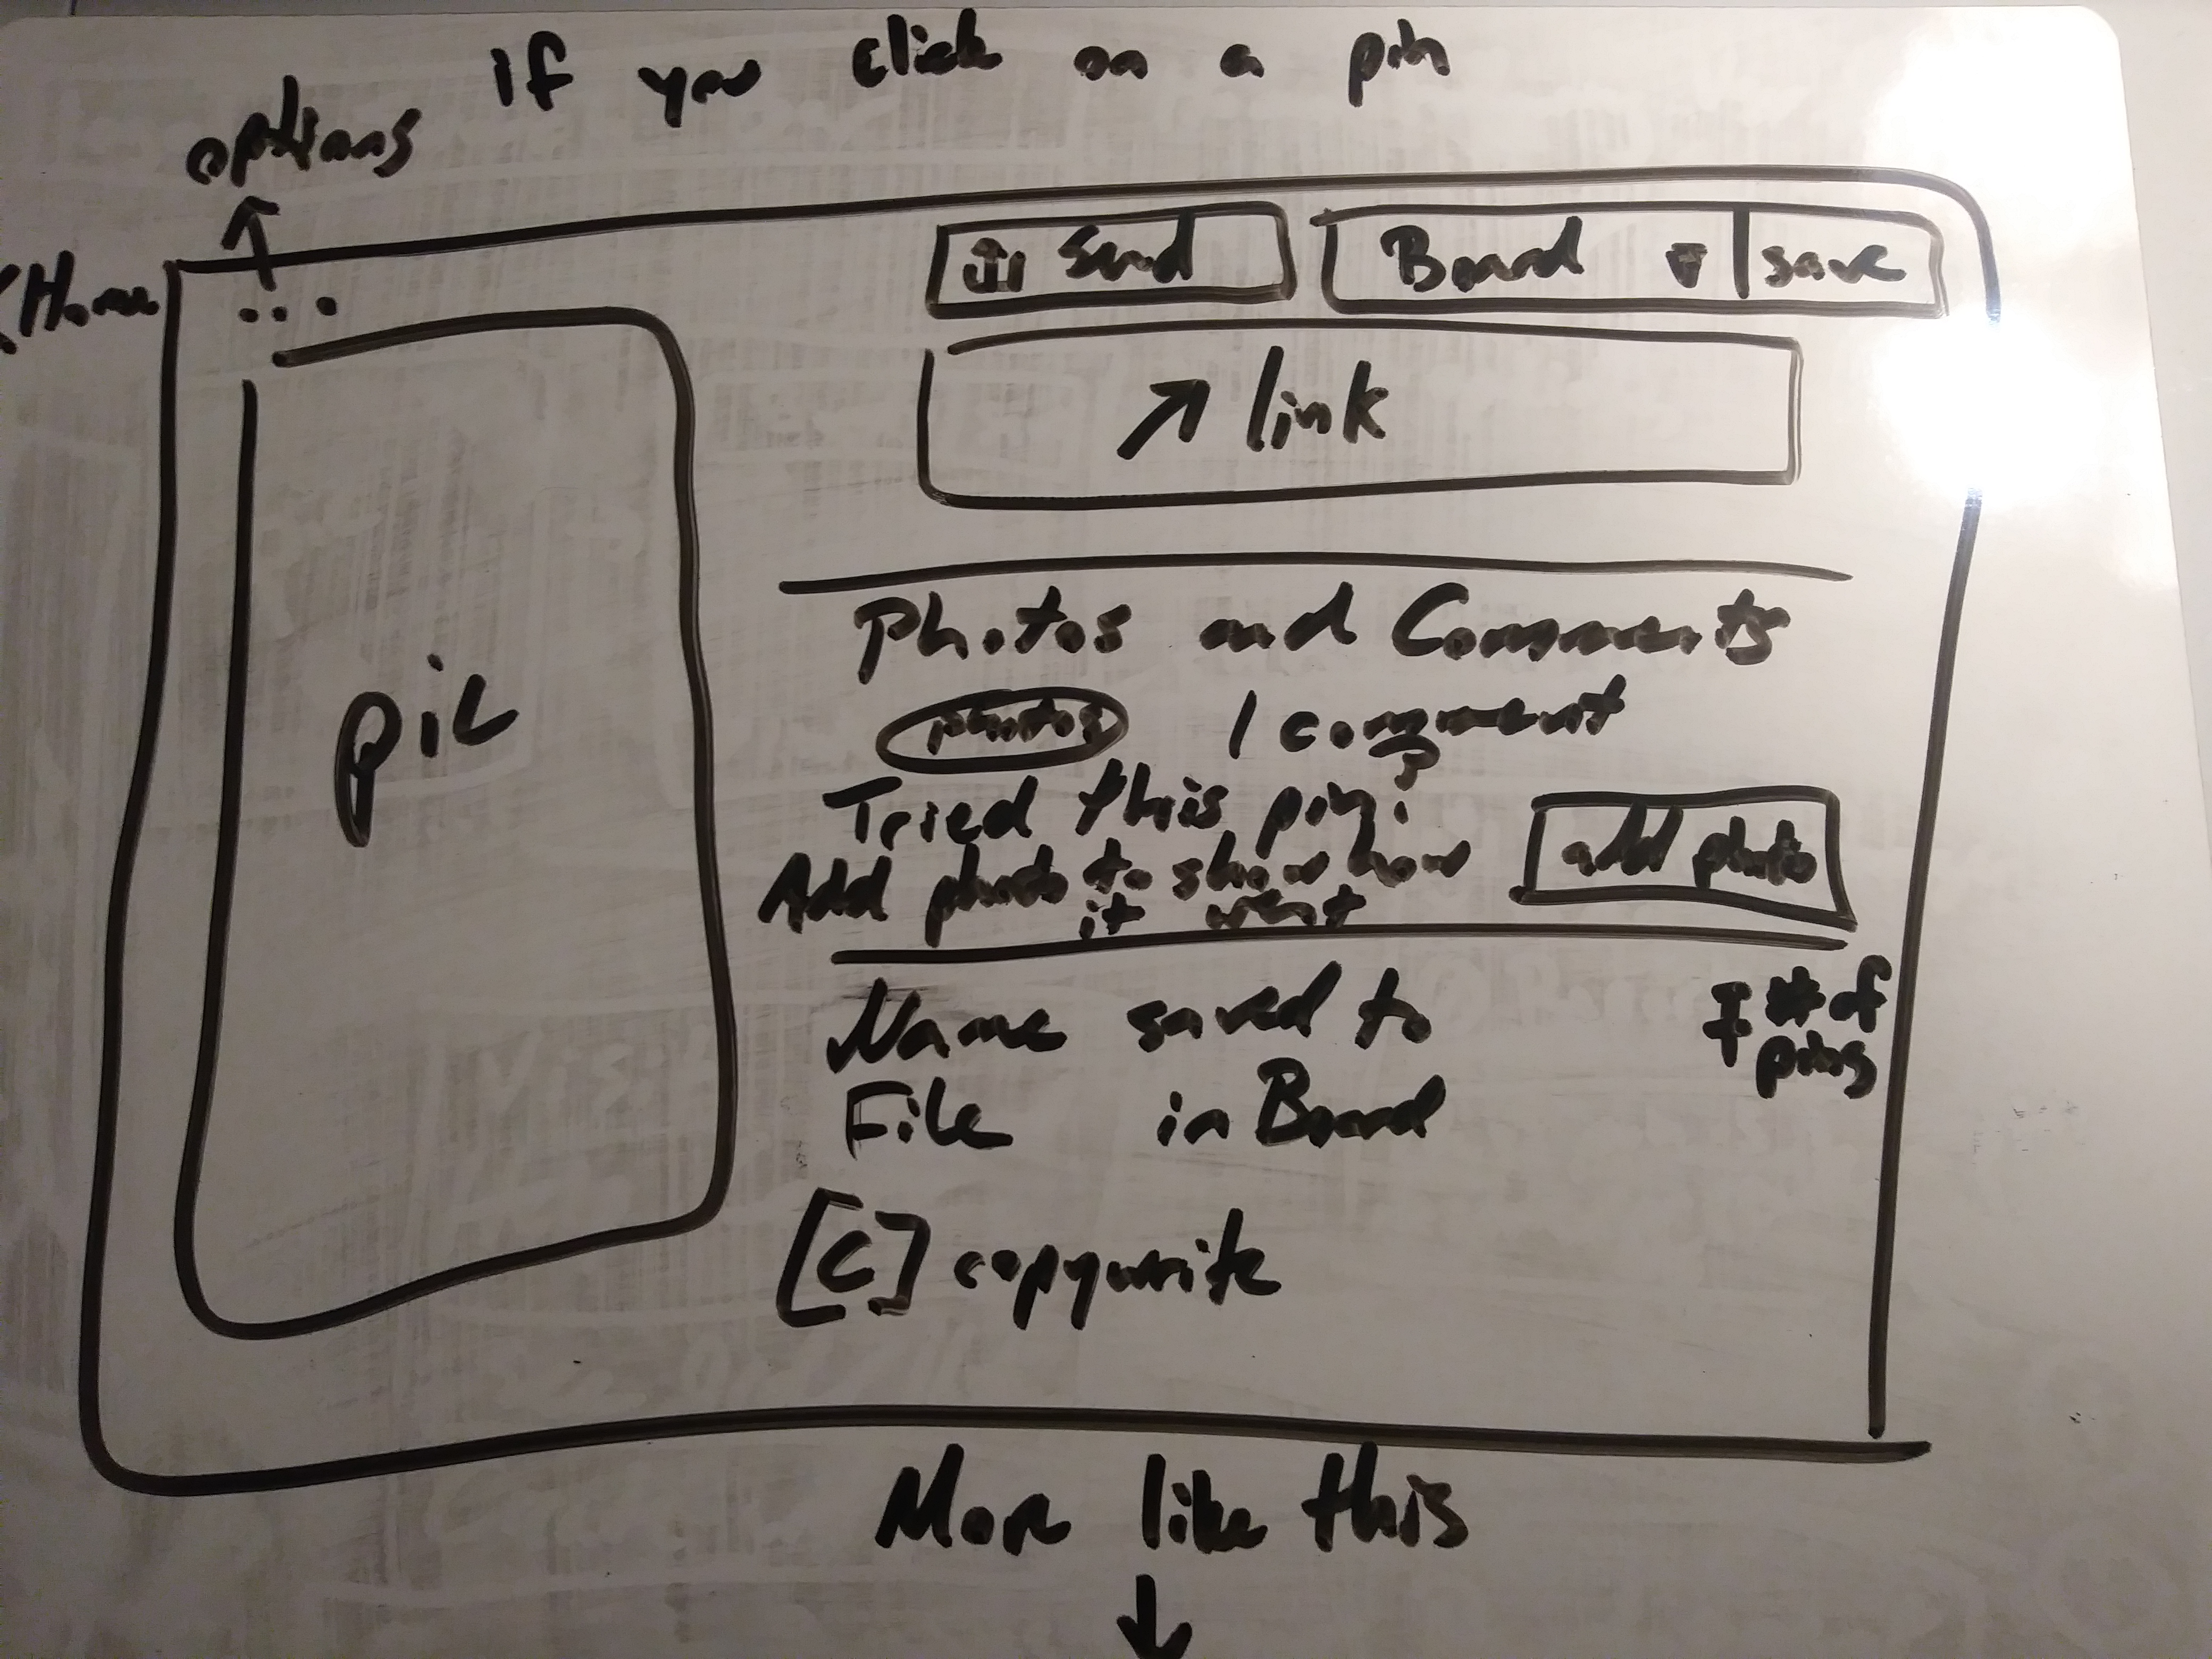 if you click on a pin
options
<Home
...
Send
Board ▼ | save
↗ link
pic
Photos and Comments
photos | comment
Tried this pin?
Add photo to show how
it went
add photo
Name saved to
File in Board
# of
pins
[C] copywrite
More like this
↓